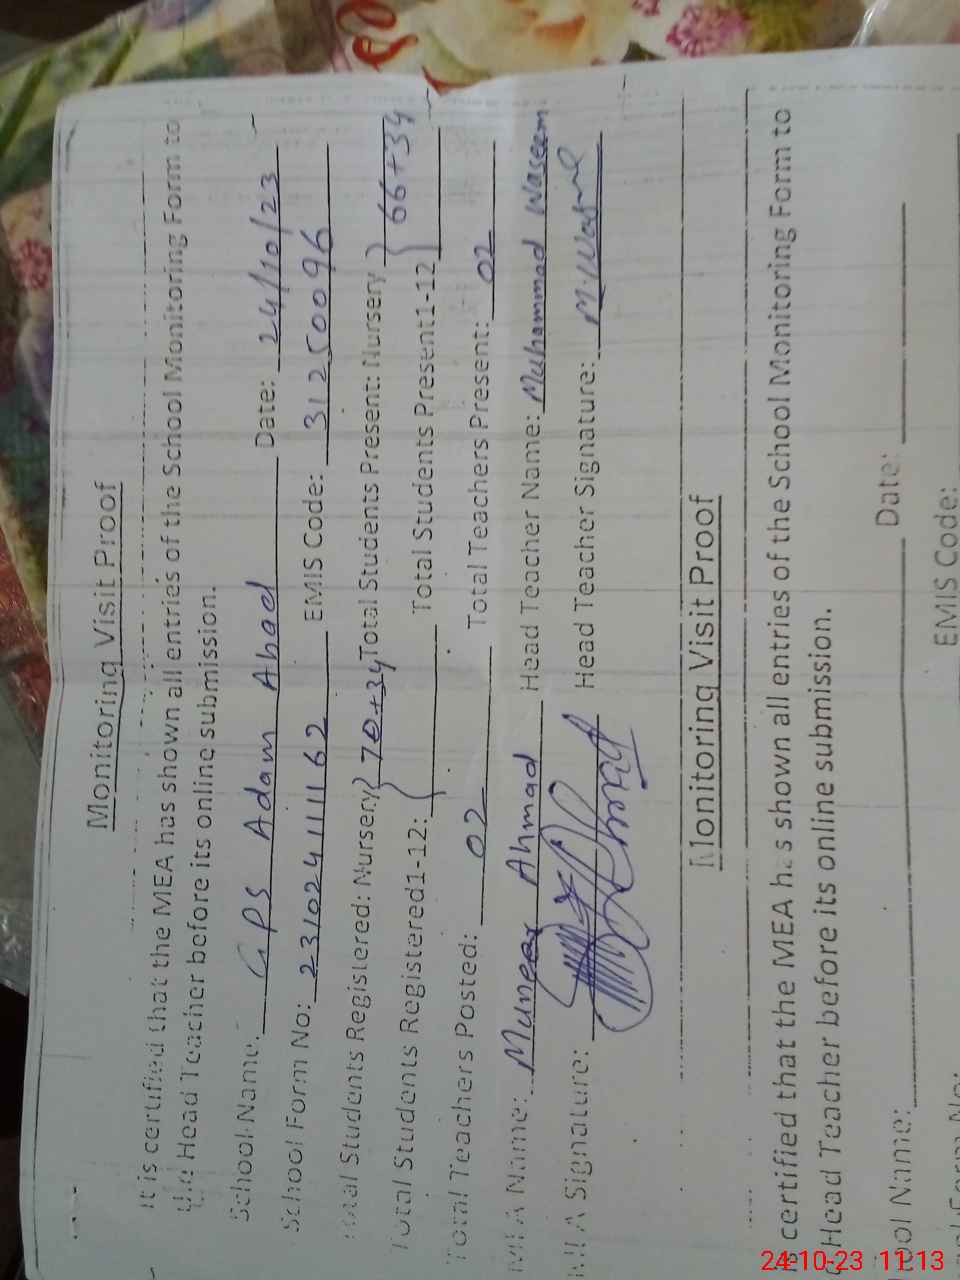 Monitoring Visit Proof
It is certified that the MEA has shown all entries of the School Monitoring Form to
the Head Teacher before its online submission.
School Name: GPS Adam Ahad Date: 24/10/23
School Form No: 231024111162 EMIS Code: 31250096
Total Students Registered: Nursery} 70+34 Total Students Present: Nursery} 66+34
Total Students Registered1-12: { Total Students Present1-12 {
Total Teachers Posted: 02 Total Teachers Present: 02
MEA Name: Muneer Ahmad Head Teacher Name: Muhammad Waseem
MEA Signature: Head Teacher Signature:
Monitoring Visit Proof
is certified that the MEA has shown all entries of the School Monitoring Form to
Head Teacher before its online submission.
ool Name: Date:
Form No: EMIS Code:
24-10-23 11:13